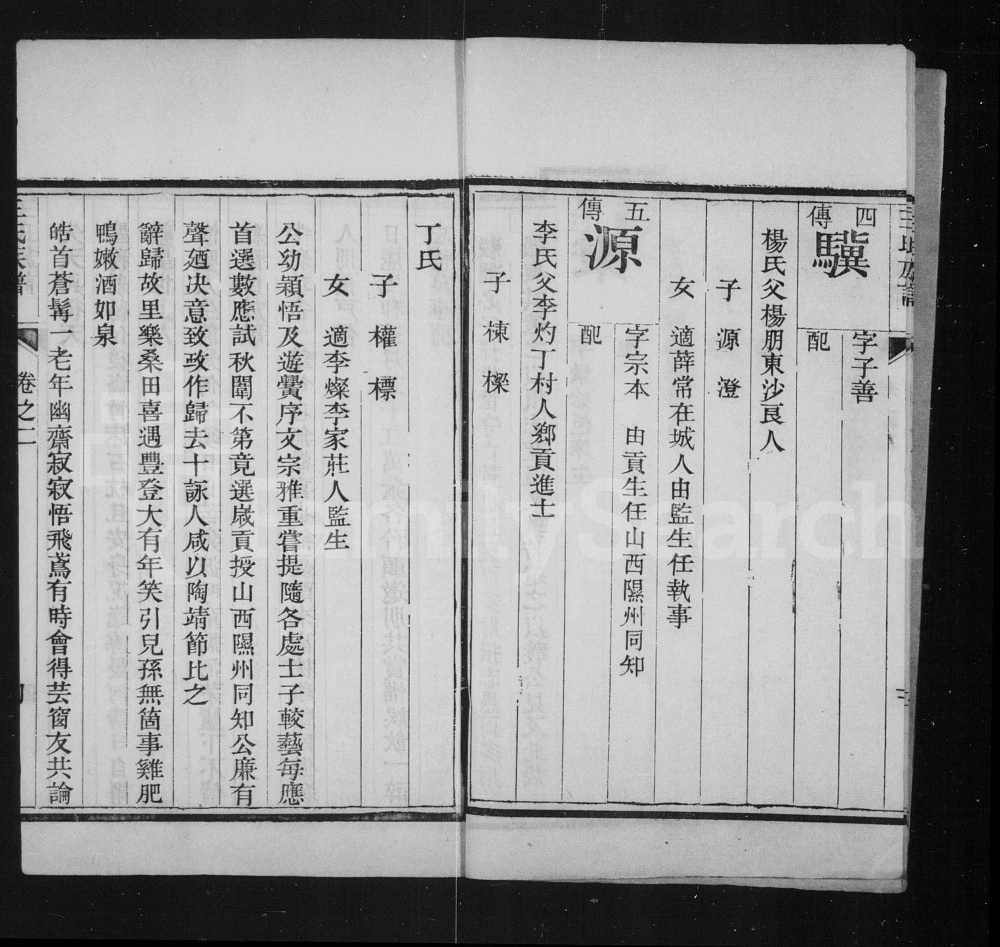 王氏族譜
四傳
驥
字子善
配
楊氏父楊朋東沙良人
子源澄
女適薛常在城人由監生任執事
五傳
源
字宗本 由貢生任山西隰州同知
配
李氏父李灼丁村人鄉貢進士
子棟樑
丁氏
子權標
女適李燦李家莊人監生
公幼穎悟及遊黌序文宗雅重嘗提隨各處士子較藝每應
首選數應試秋闈不第竟選歲貢授山西隰州同知公廉有
聲廼决意致政作歸去十詠人咸以陶靖節比之
辭歸故里樂桑田喜遇豐登大有年笑引兒孫無箇事雞肥
鴨嫩酒如泉
皓首蒼髯一老年幽齋寂寂悟飛鳶有時會得芸窗友共論
王氏族譜 卷之二
FamilySearch